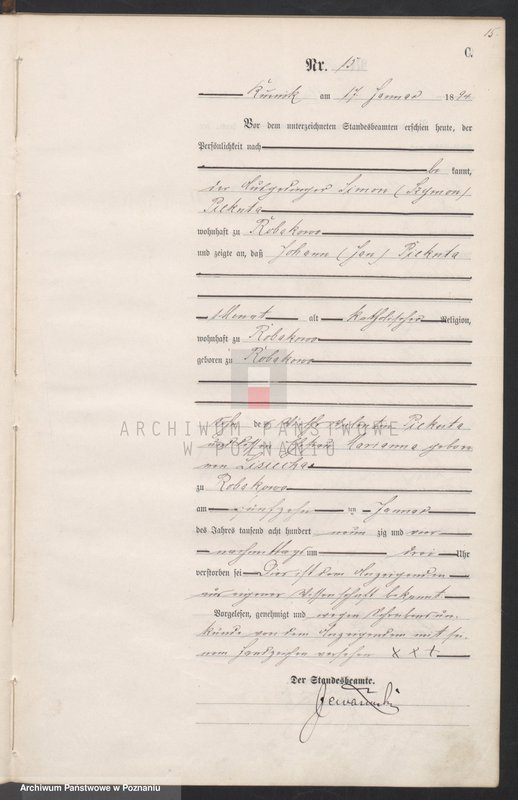 15.
C.
Nr. 15
Kurnik am 17 Januar 1894
Vor dem unterzeichneten Standesbeamten erschien heute, der
Persönlichkeit nach
be kannt,
der Simon (Szymon)
Piekuta
wohnhaft zu Robakowo
und zeigte an, daß Johann (Jan) Piekuta
1 Monat alt katholischer Religion,
wohnhaft zu Robakowo
geboren zu Robakowo
Sohn des Piekuta
Marianna geboren
zu Robakowo
am fünfzehn ten Januar
des Jahres tausend acht hundert neun zig und vier
nachmittags um drei Uhr
verstorben sei Dies ist dem Anzeigenden
aus eigener Wissenschaft bekannt
Vorgelesen, genehmigt und wegen Schreibensun-
kunde von dem Anzeigenden mit sei-
nem Handzeichen versehen x x +
Der Standesbeamte.
ARCHIWUM PAŃSTWOWE
W POZNANIU
Archiwum Państwowe w Poznaniu